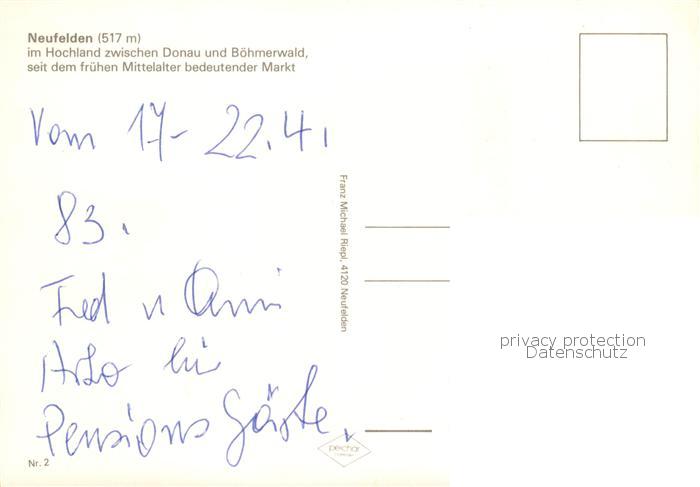 Neufelden (517 m)
im Hochland zwischen Donau und Böhmerwald,
seit dem frühen Mittelalter bedeutender Markt
Vom 17- 22.4.
83.
Fred u
Pensions Gäste.
Franz Michael Riepl, 4120 Neufelden
privacy protection
Datenschutz
Nr. 2